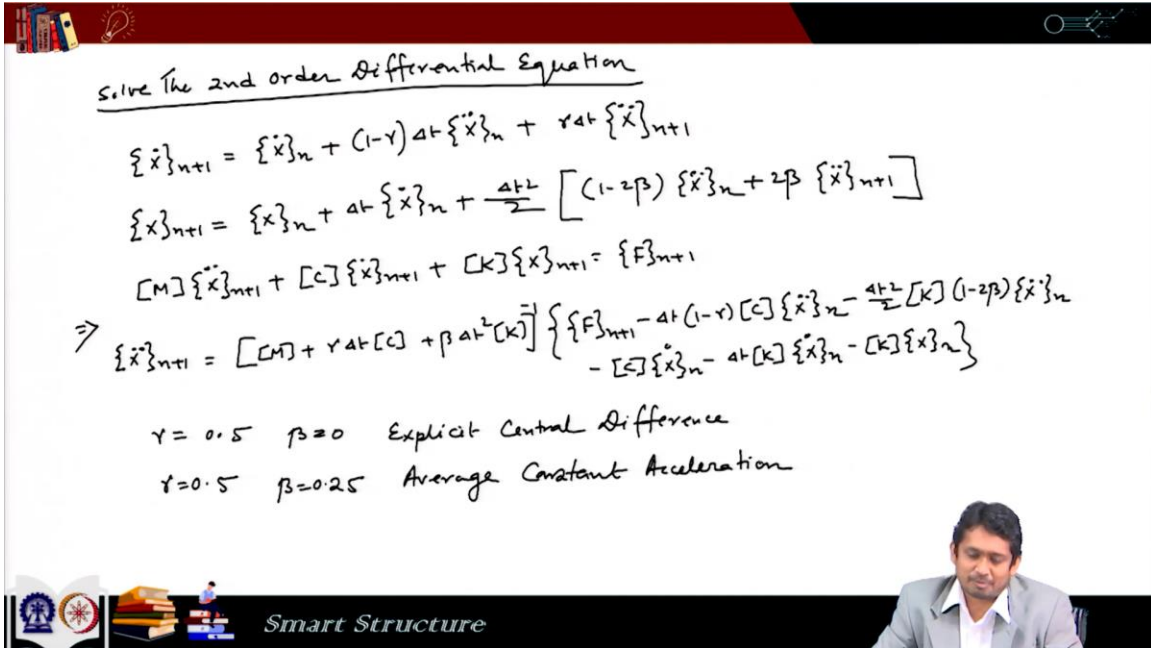 Solve The 2nd order Differential Equation
{ẋ}n+1 = {ẋ}n + (1-γ) Δt {ẍ}n + γΔt {ẍ}n+1
{x}n+1 = {x}n + Δt {ẋ}n + Δt²/2 [(1-2β) {ẍ}n + 2β {ẍ}n+1]
[M]{ẍ}n+1 + [C]{ẋ}n+1 + [K]{x}n+1 = {F}n+1
⇒ {ẍ}n+1 = [[M] + γΔt[C] + βΔt²[K]]⁻¹ {{F}n+1 - Δt(1-γ)[C]{ẍ}n - Δt²/2 [K](1-2β){ẍ}n
- [C]{ẋ}n - Δt[K]{ẋ}n - [K]{x}n}
γ = 0.5 β=0 Explicit Central Difference
γ=0.5 β=0.25 Average Constant Acceleration
Smart Structure